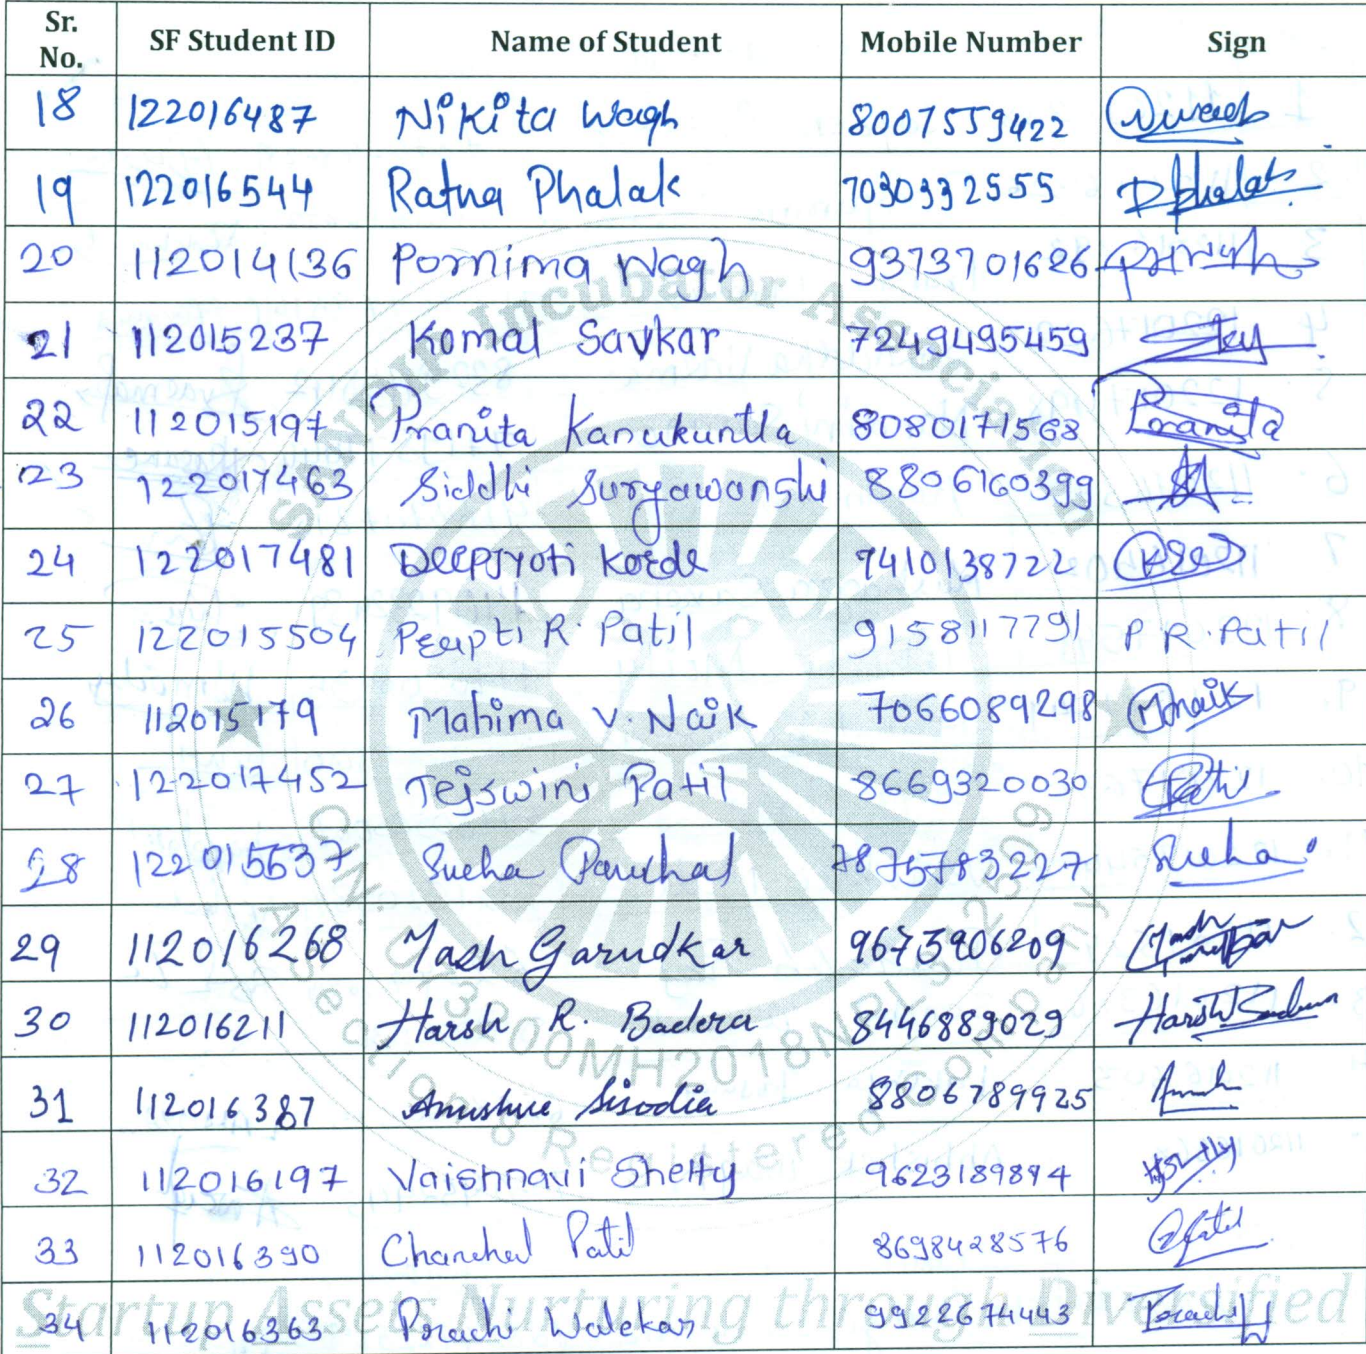 Sr. No. SF Student ID Name of Student Mobile Number Sign
18 122016487 Nikita Wagh 8007559422
19 122016544 Ratna Phalak 7030332555 Rphalak
20 112014136 Pornima Wagh 9373701626
21 112015237 Komal Savkar 7249495459
22 112015197 Pranita Kanukuntla 8080171568 Pranita
23 122017463 Siddhi Suryawanshi 8806160399
24 122017481 Deepjyoti Korde 7410138722
25 122015504 R. Patil 9158117791 P R. Patil
26 112015179 Mahima V. Naik 7066089298 Mnaik
27 122017452 Tejswini Patil 8669320030 Patil
28 122015637 Sneha Panchal 7875783227 Sneha
29 112016268 Yash Garudkar 9673906209 Yash
30 112016211 Harsh R. Badera 8446889029 Harsh
31 112016387 Anushree Sisodia 8806789925
32 112016197 Vaishnavi Shetty 9623189894
33 112016390 Chanchal Patil 8698428576 Patil
34 112016363 Prachi Walekar 9922674443 Prachi W
SANDIP Incubator Association
A Section 8 Registered Company
Startup Assets Nurturing through Diversified